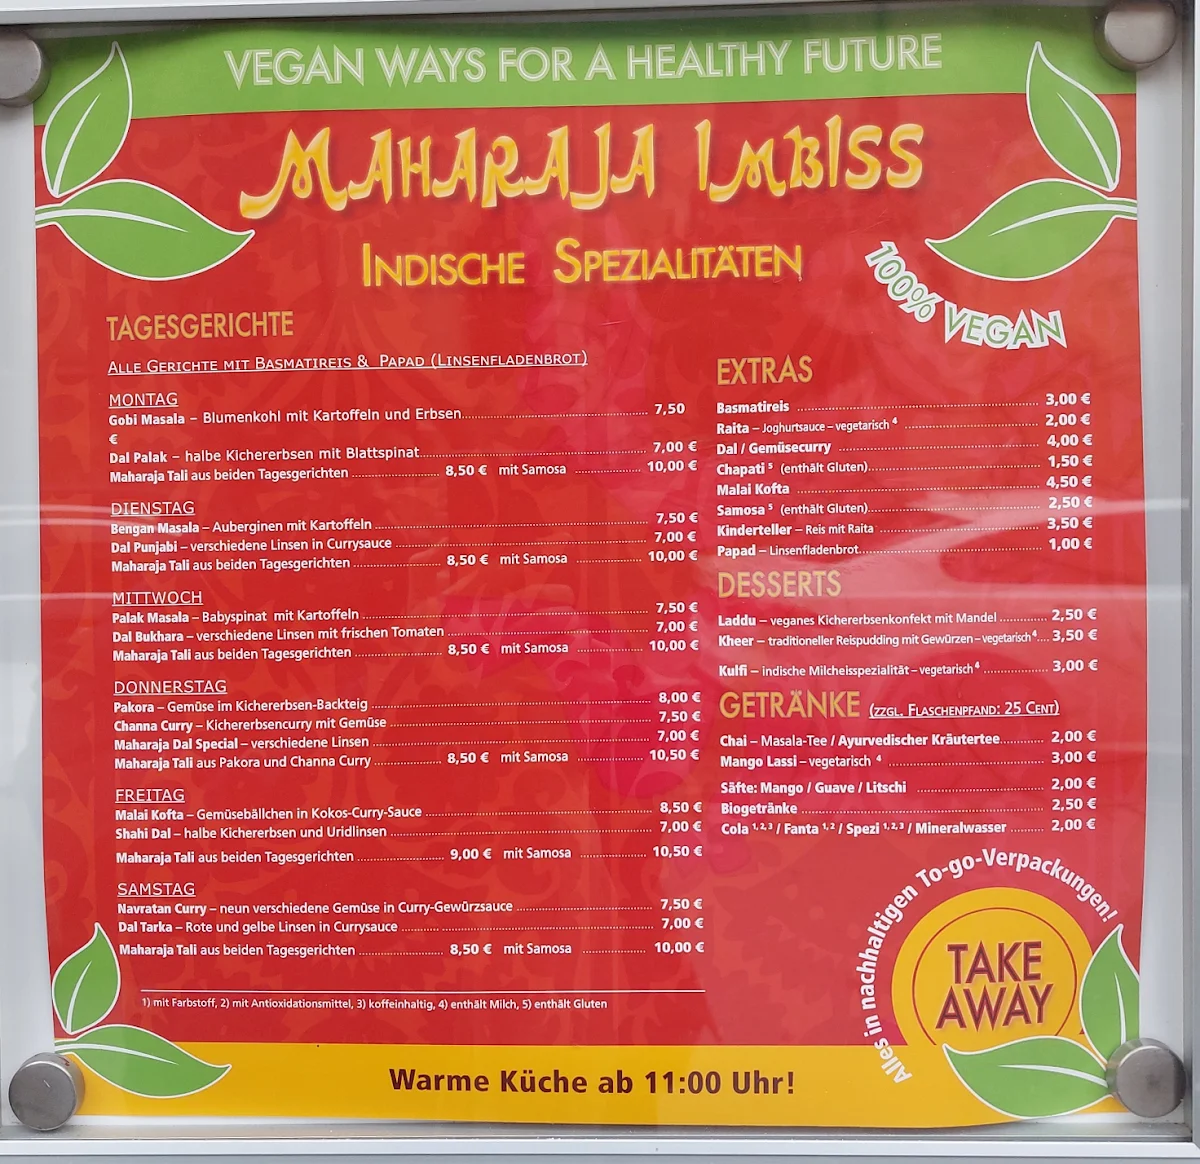 VEGAN WAYS FOR A HEALTHY FUTURE
MAHARAJA IMBISS
INDISCHE SPEZIALITÄTEN
100% VEGAN
TAGESGERICHTE
ALLE GERICHTE MIT BASMATIREIS & PAPAD (LINSENFLADENBROT)
MONTAG
Gobi Masala – Blumenkohl mit Kartoffeln und Erbsen 7,50
€
Dal Palak – halbe Kichererbsen mit Blattspinat 7,00 €
Maharaja Tali aus beiden Tagesgerichten 8,50 € mit Samosa 10,00 €
DIENSTAG
Bengan Masala – Auberginen mit Kartoffeln 7,50 €
Dal Punjabi – verschiedene Linsen in Currysauce 7,00 €
Maharaja Tali aus beiden Tagesgerichten 8,50 € mit Samosa 10,00 €
MITTWOCH
Palak Masala – Babyspinat mit Kartoffeln 7,50 €
Dal Bukhara – verschiedene Linsen mit frischen Tomaten 7,00 €
Maharaja Tali aus beiden Tagesgerichten 8,50 € mit Samosa 10,00 €
DONNERSTAG
Pakora – Gemüse im Kichererbsen-Backteig 8,00 €
Channa Curry – Kichererbsencurry mit Gemüse 7,50 €
Maharaja Dal Special – verschiedene Linsen 7,00 €
Maharaja Tali aus Pakora und Channa Curry 8,50 € mit Samosa 10,50 €
FREITAG
Malai Kofta – Gemüsebällchen in Kokos-Curry-Sauce 8,50 €
Shahi Dal – halbe Kichererbsen und Uridlinsen 7,00 €
Maharaja Tali aus beiden Tagesgerichten 9,00 € mit Samosa 10,50 €
SAMSTAG
Navratan Curry – neun verschiedene Gemüse in Curry-Gewürzsauce 7,50 €
Dal Tarka – Rote und gelbe Linsen in Currysauce 7,00 €
Maharaja Tali aus beiden Tagesgerichten 8,50 € mit Samosa 10,00 €
1) mit Farbstoff, 2) mit Antioxidationsmittel, 3) koffeinhaltig, 4) enthält Milch, 5) enthält Gluten
EXTRAS
Basmatireis 3,00 €
Raita – Joghurtsauce – vegetarisch ⁴ 2,00 €
Dal / Gemüsecurry 4,00 €
Chapati ⁵ (enthält Gluten) 1,50 €
Malai Kofta 4,50 €
Samosa ⁵ (enthält Gluten) 2,50 €
Kinderteller – Reis mit Raita 3,50 €
Papad – Linsenfladenbrot 1,00 €
DESSERTS
Laddu – veganes Kichererbsenkonfekt mit Mandel 2,50 €
Kheer – traditioneller Reispudding mit Gewürzen – vegetarisch ⁴ 3,50 €
Kulfi – indische Milcheisspezialität – vegetarisch ⁴ 3,00 €
GETRÄNKE (ZZGL. FLASCHENPFAND: 25 CENT)
Chai – Masala-Tee / Ayurvedischer Kräutertee 2,00 €
Mango Lassi – vegetarisch ⁴ 3,00 €
Säfte: Mango / Guave / Litschi 2,00 €
Biogetränke 2,50 €
Cola ¹,²,³ / Fanta ¹,² / Spezi ¹,²,³ / Mineralwasser 2,00 €
Alles in nachhaltigen To-go-Verpackungen!
TAKE
AWAY
Warme Küche ab 11:00 Uhr!